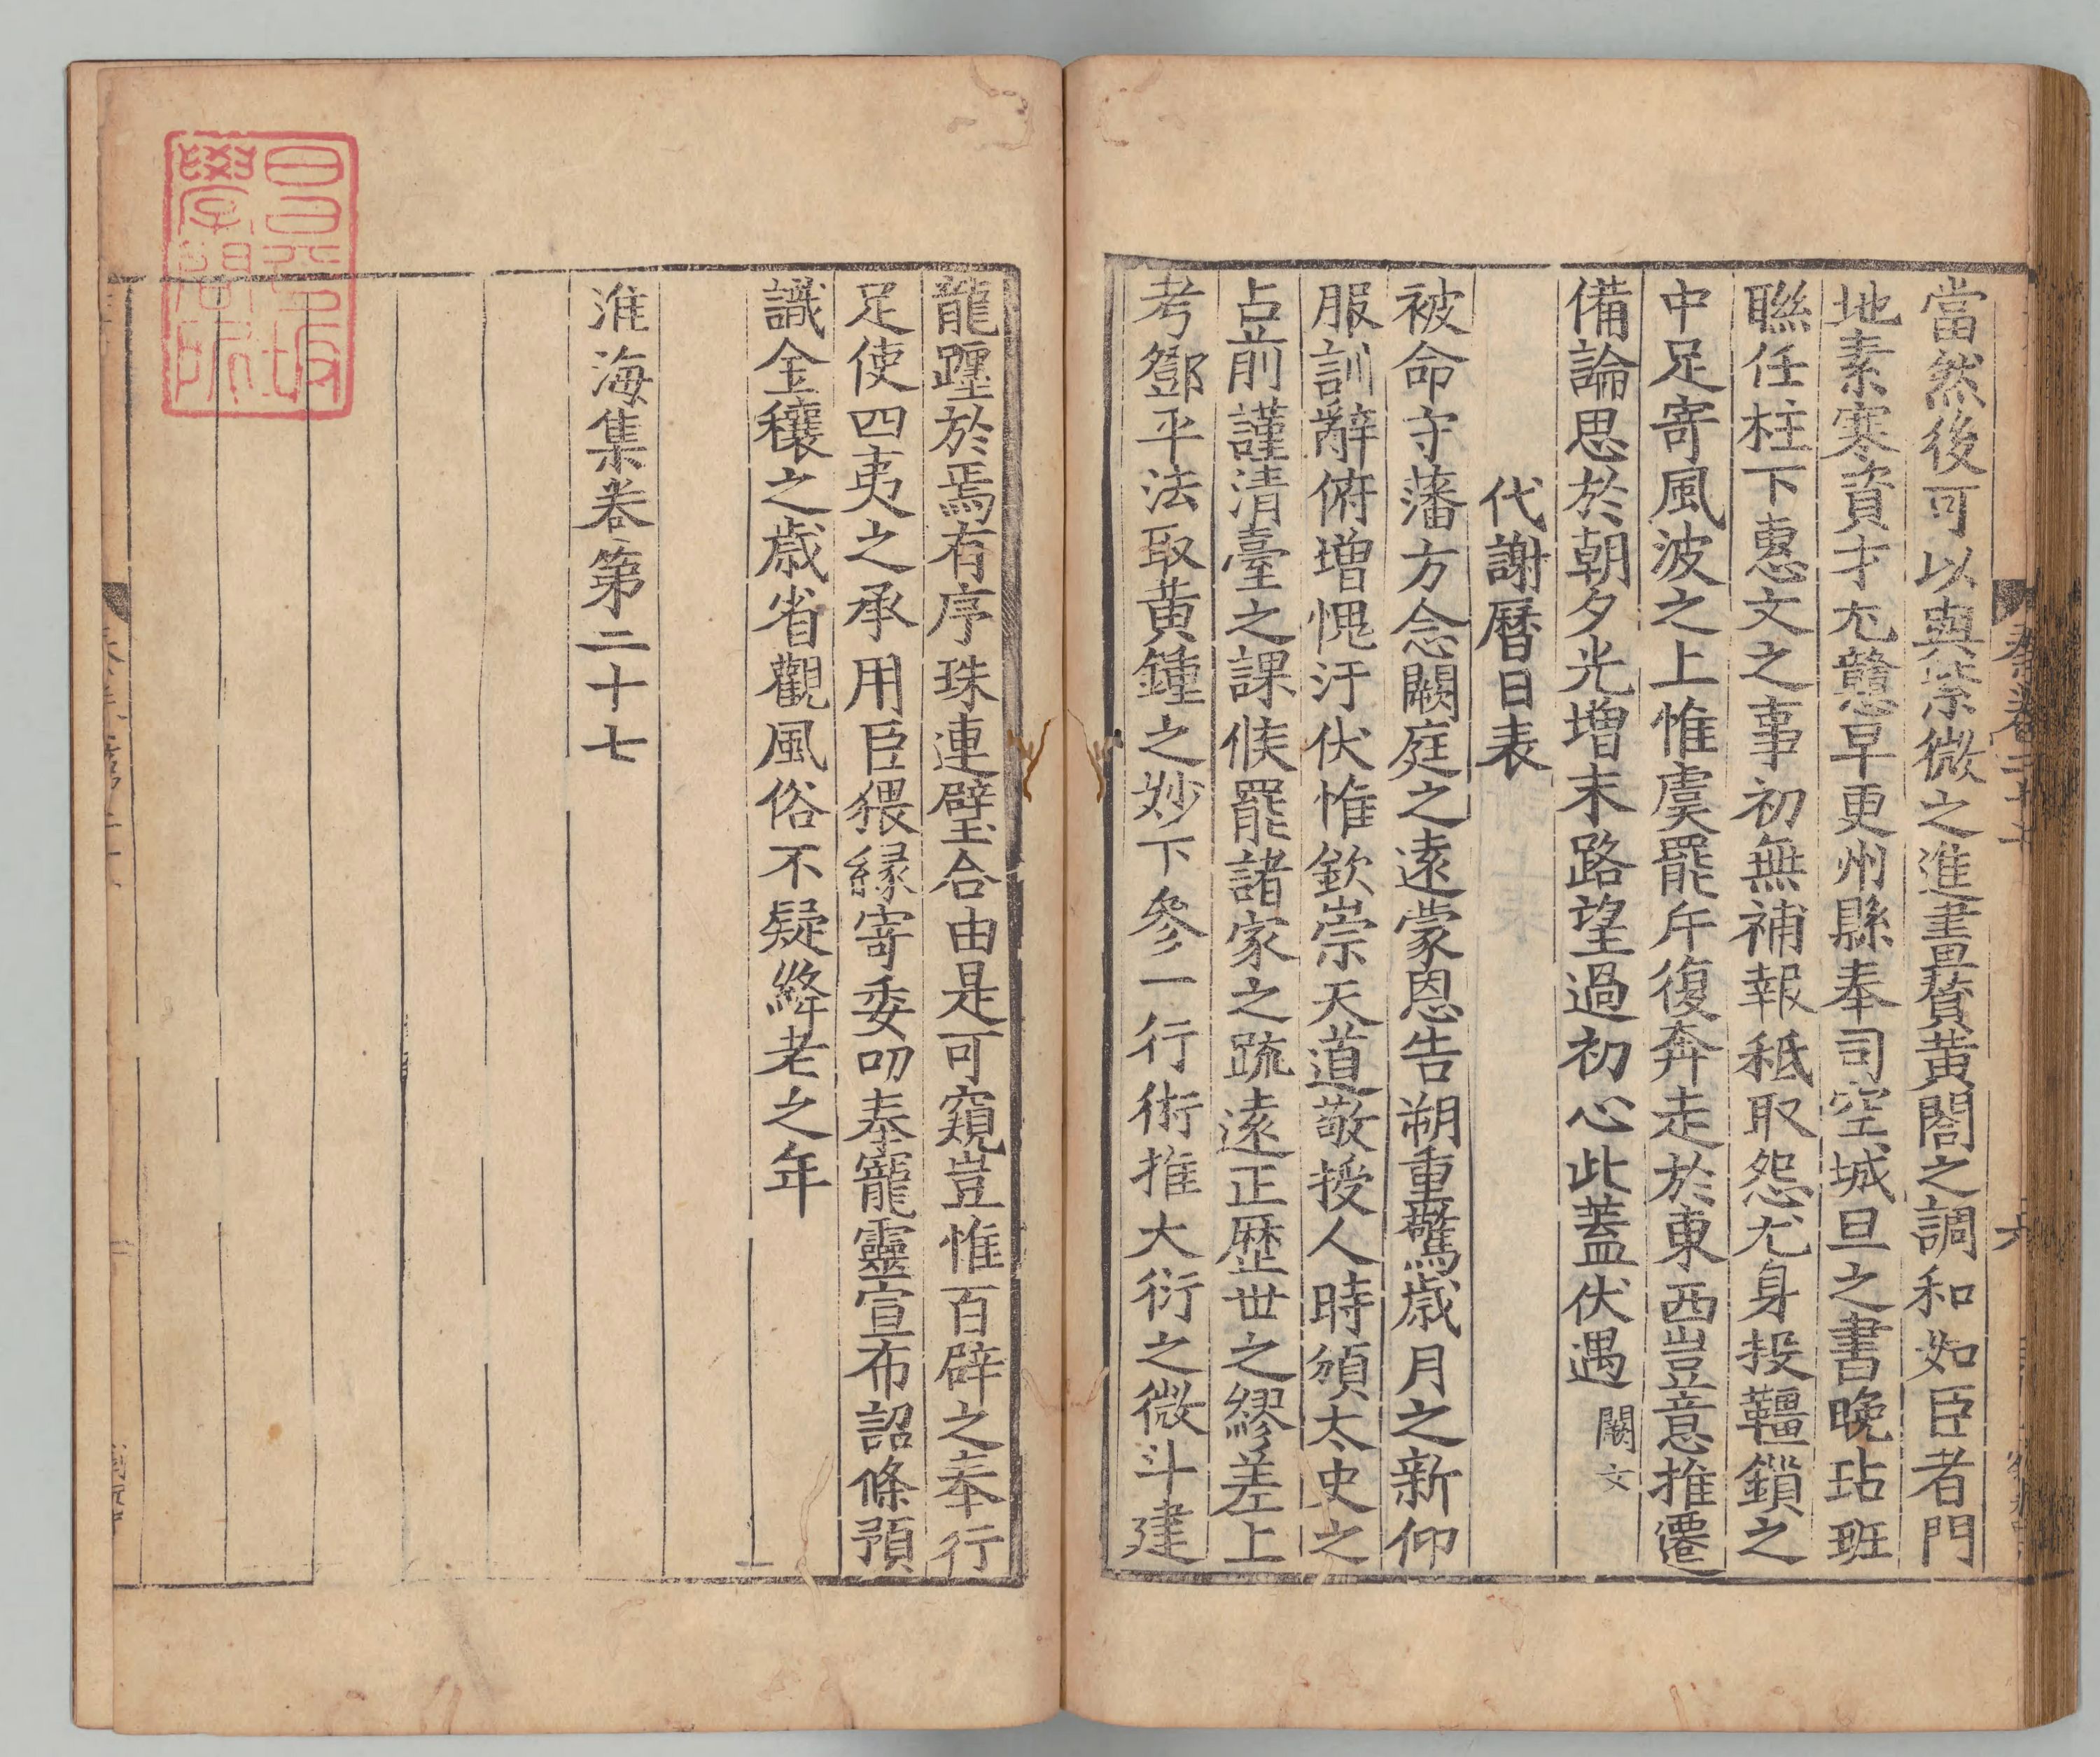 當然後可以與紫微之進畫贊黄閤之調和如臣者門
地素寒資才尤戇早更州縣奉司空城旦之書晚玷班
聯任柱下惠文之事初無補報秖取怨尤身投韁鎖之
中足寄風波之上惟虞罷斥復奔走於東西豈意推遷
備論思於朝夕光增末路望過初心此蓋伏遇 闕文
代謝曆日表
被命守藩方念闕庭之遠蒙恩告朔重驚歲月之新仰
服訓辭俯增愧汗伏惟欽崇天道敬授人時頒太史之
占前謹清臺之課候罷諸家之疏遠正歷世之繆差上
考鄧平法取黄鍾之妙下參一行術推大衍之微斗建
龍躔於焉有序珠連璧合由是可窺豈惟百辟之奉行
足使四夷之承用臣猥緣寄委叨奉寵靈宣布詔條預
識金穰之歲省觀風俗不疑絳老之年
淮海集卷第二十七
昌平坂
學問所